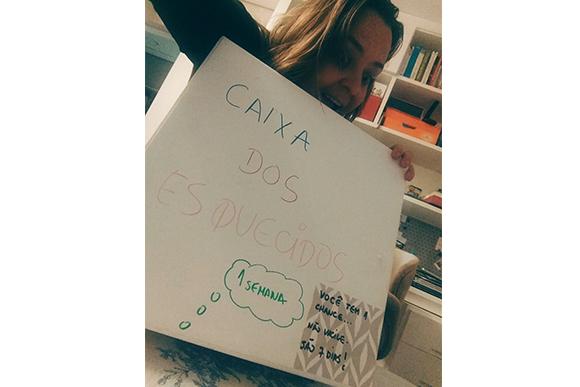 CAIXA
DOS
ESQUECIDOS
1 SEMANA
VOCÊ TEM 1
CHANCE...
NÃO VACILE.
SÃO 7 DIAS!